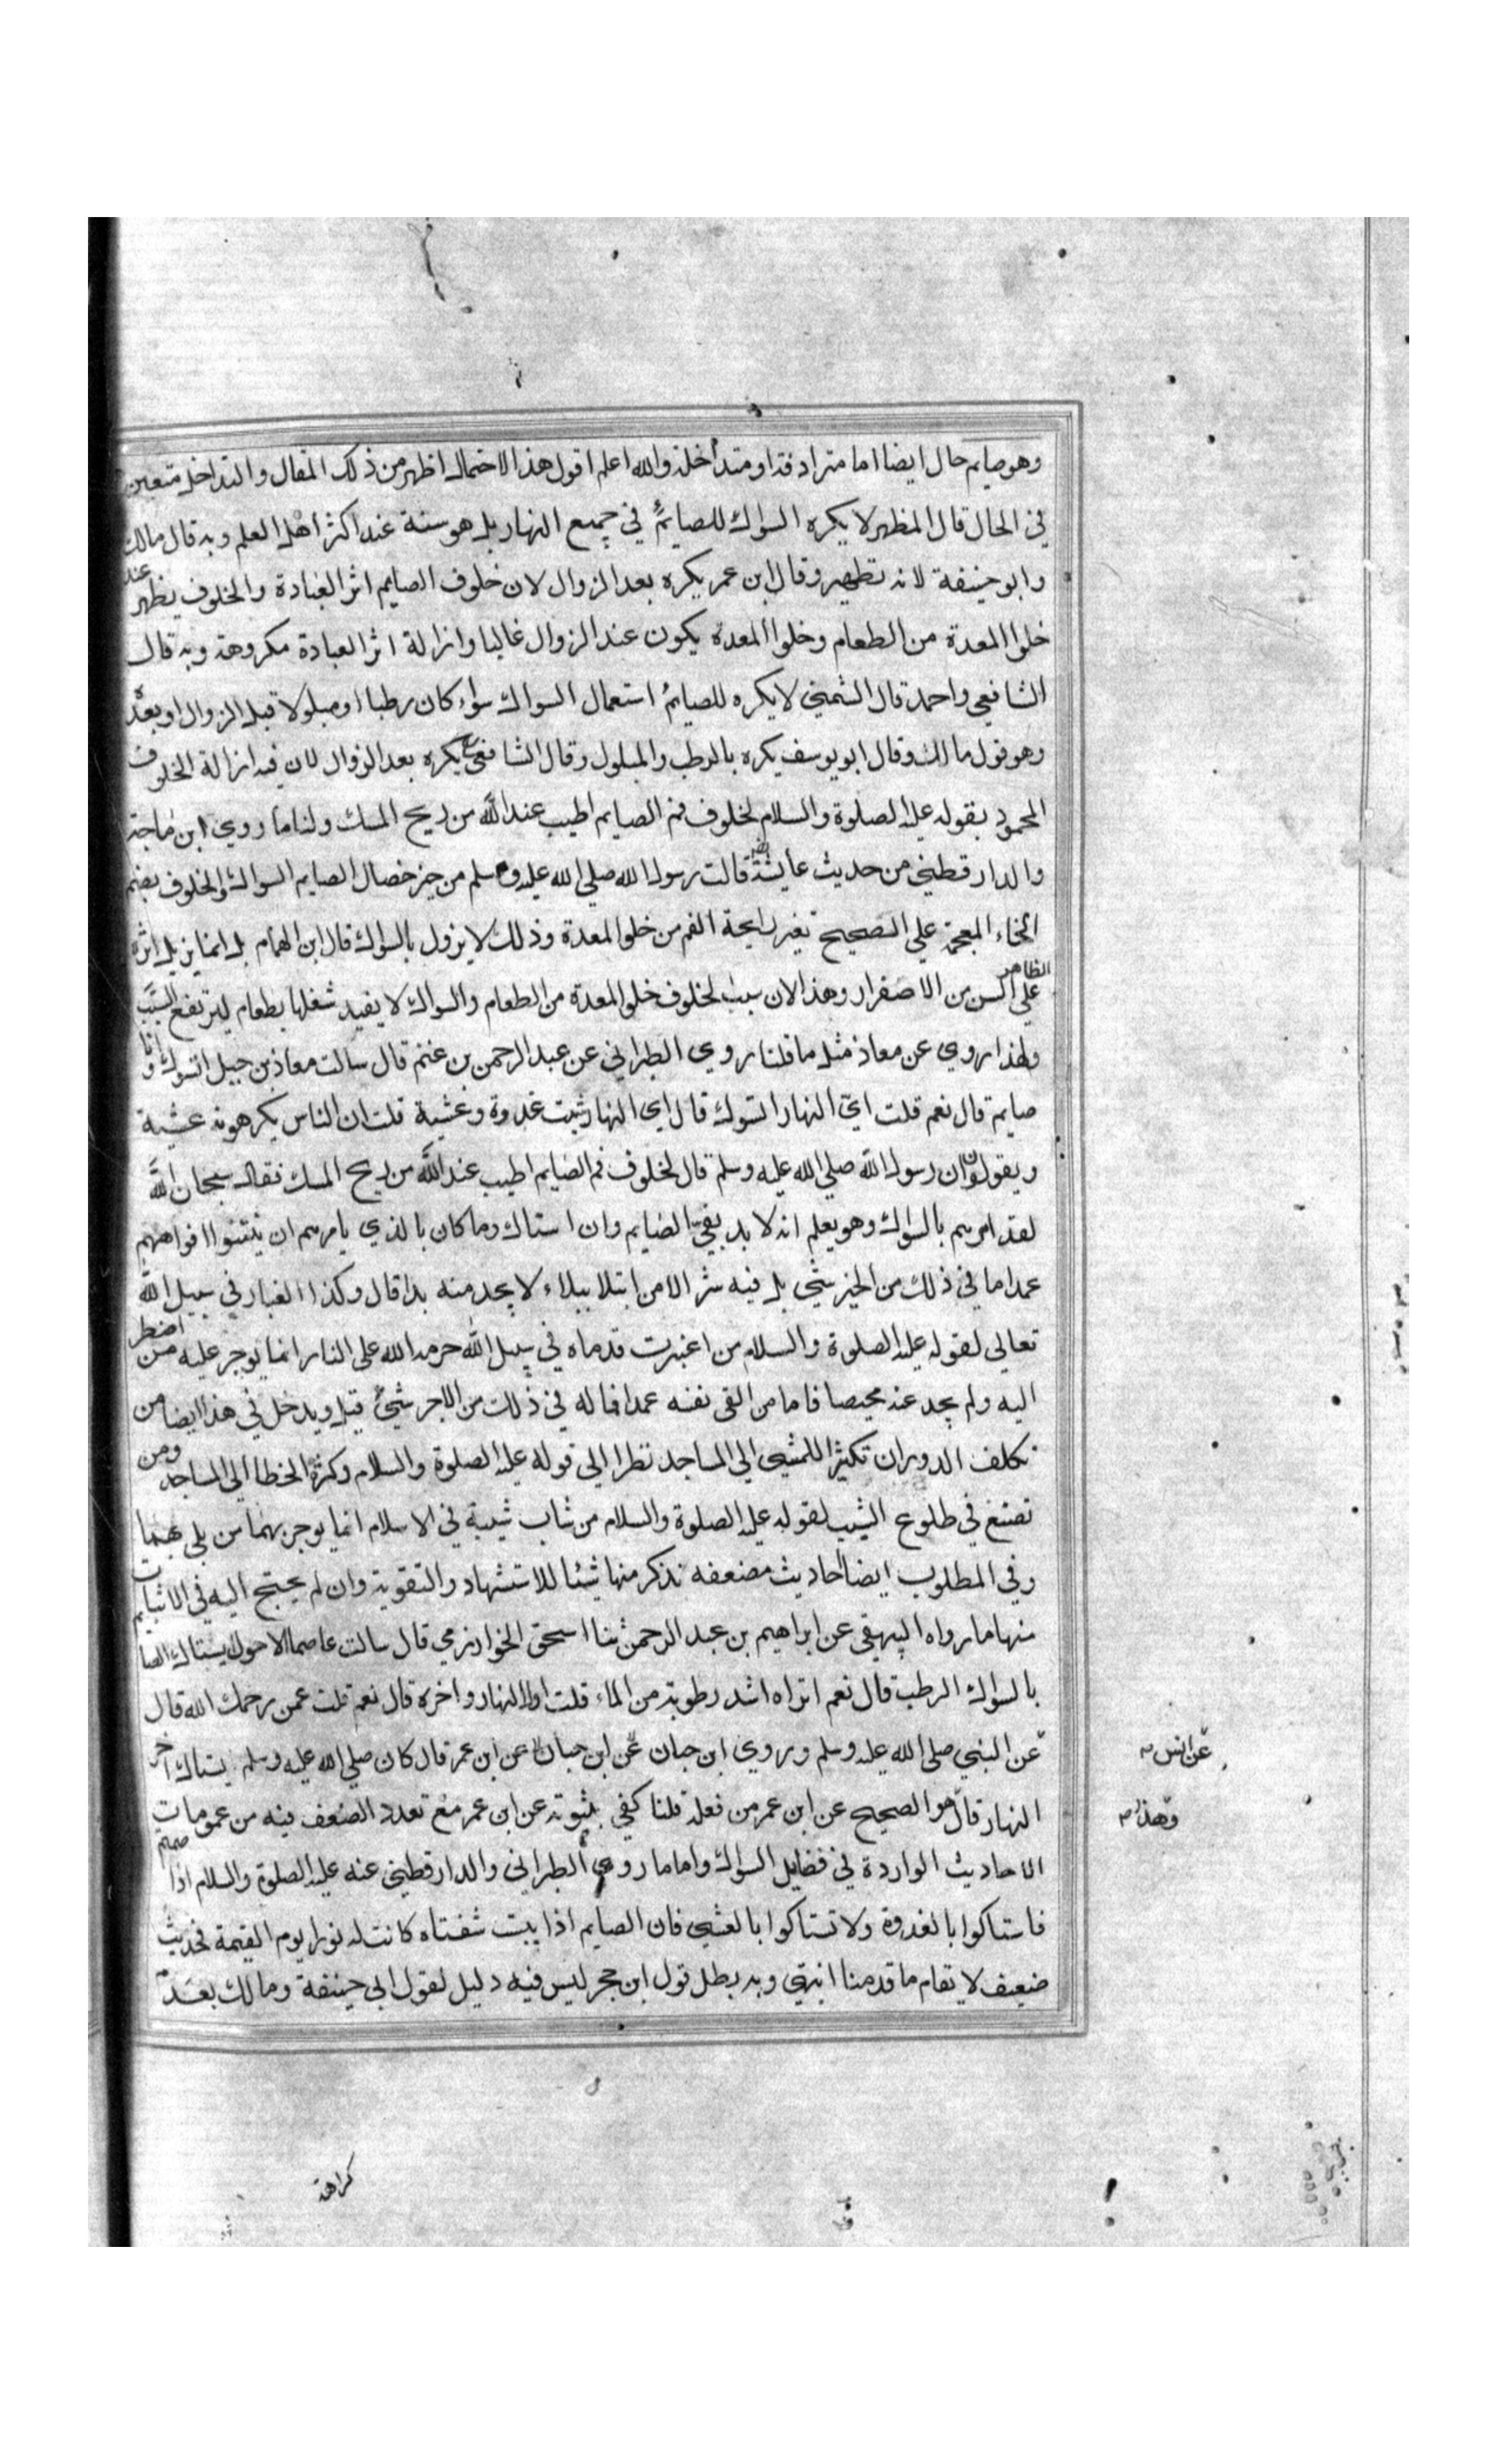 وهو صايم حال ايضا اما مترادفة او متداخلة والله اعلم اقول هذا الاحتمال اظهر من ذلك المقال والتداخل متعين
في الحال قال المظهر لا يكره السواك للصايم في جميع النهار بل هو سنة عند اكثر اهل العلم وبه قال مالك
وابو حنيفة لانه تطهير وقال ابن عمر يكره بعد الزوال لان خلوف الصايم اثر العبادة والخلوف يظهر عند
خلو المعدة من الطعام وخلو المعدة يكون عند الزوال غالبا وازالة اثر العبادة مكروهة وبه قال
الشافعي واحمد قال الشمني لا يكره للصايم استعمال السواك سواء كان رطبا او مبلولا قبل الزوال او بعده
وهو قول مالك وقال ابو يوسف يكره بالرطب والمبلول وقال الشافعي يكره بعد الزوال لان فيه ازالة الخلوف
المحمود بقوله عليه الصلوة والسلام لخلوف فم الصايم اطيب عند الله من ريح المسك ولنا ما روي ابن ماجة
والدارقطني من حديث عايشة قالت رسول الله صلي الله عليه وسلم من خير خصال الصايم السواك والخلوف بضم
الخاء المعجمة علي الصحيح تغير رايحة الفم من خلو المعدة وذلك لا يزول بالسواك قال ابن الهمام بل انما يزيل اثره
الظاهر علي السن من الاصفرار وهذا لان سبب لخلوف خلو المعدة من الطعام والسواك لا يفيد شغلها بطعام ليرتفع السبب
ولهذا روي عن معاذ مثل ما قلنا روي الطبراني عن عبد الرحمن بن غنم قال سالت معاذ بن جبل اتسوك وانا
صايم قال نعم قلت اي النهار اتسوك قال اي النهار شيت غدوة وعشية قلت ان الناس يكرهونه عشية
ويقولون ان رسول الله صلي الله عليه وسلم قال لخلوف فم الصايم اطيب عند الله من ريح المسك فقال سبحان الله
لقد امرهم بالسواك وهو يعلم انه لا بد بفي الصايم وان استاك وما كان بالذي يامرهم ان ينتنوا افواههم
عمدا ما في ذلك من الخير شي بل فيه شر الا من ابتلا ببلاء لا يجد منه بدا قال وكذا الغبار في سبيل الله
تعالي لقوله عليه الصلوة والسلام من اغبرت قدماه في سبيل الله حرمه الله علي النار انما يوجر عليه من اضطر
اليه ولم يجد عنه محيصا فاما من القي نفسه عمدا فما له في ذلك من الاجر شي قيل ويدخل في هذا ايضا من
تكلف الدوران تكثيرا للمشي الي المساجد نظرا الي قوله عليه الصلوة والسلام وكثرة الخطا الي المساجد ومن
تصنع في طلوع الشيب لقوله عليه الصلوة والسلام من شاب شيبة في الاسلام انما يوجر بهما من بلي بهما
وفي المطلوب ايضا احاديث مضعفه نذكر منها شيئا للاستشهاد والتقوية وان لم يحتج اليه في الاثبات
منها ما رواه البيهقي عن ابراهيم بن عبد الرحمن ثنا اسحق الخوارزمي قال سالت عاصما الاحول يستاك الصايم
بالسواك الرطب قال نعم اتراه اشد رطوبة من الماء قلت اول النهار واخره قال نعم قلت عمن رحمك الله قال
عن النبي صلي الله عليه وسلم وروي ابن حبان عن ابن حبان عن ابن عمر قال كان صلي الله عليه وسلم يستاك اخر
عن انس صح
النهار قال هو الصحيح عن ابن عمر من فعله قلنا كفي بثبوته عن ابن عمر مع تعدد الضعف فيه من عمومات
وهذا صح
الاحاديث الواردة في فضايل السواك واما ما روي الطبراني والدارقطني عنه عليه الصلوة والسلام اذا صمتم
فاستاكوا بالغدوة ولا تستاكوا بالعشي فان الصايم اذا يبست شفتاه كانت له نورا يوم القيمة فحديث
ضعيف لا تقام ما قدمنا انتهي وبه بطل قول ابن حجر ليس فيه دليل لقول ابي حنيفة ومالك بعدم
كراهة